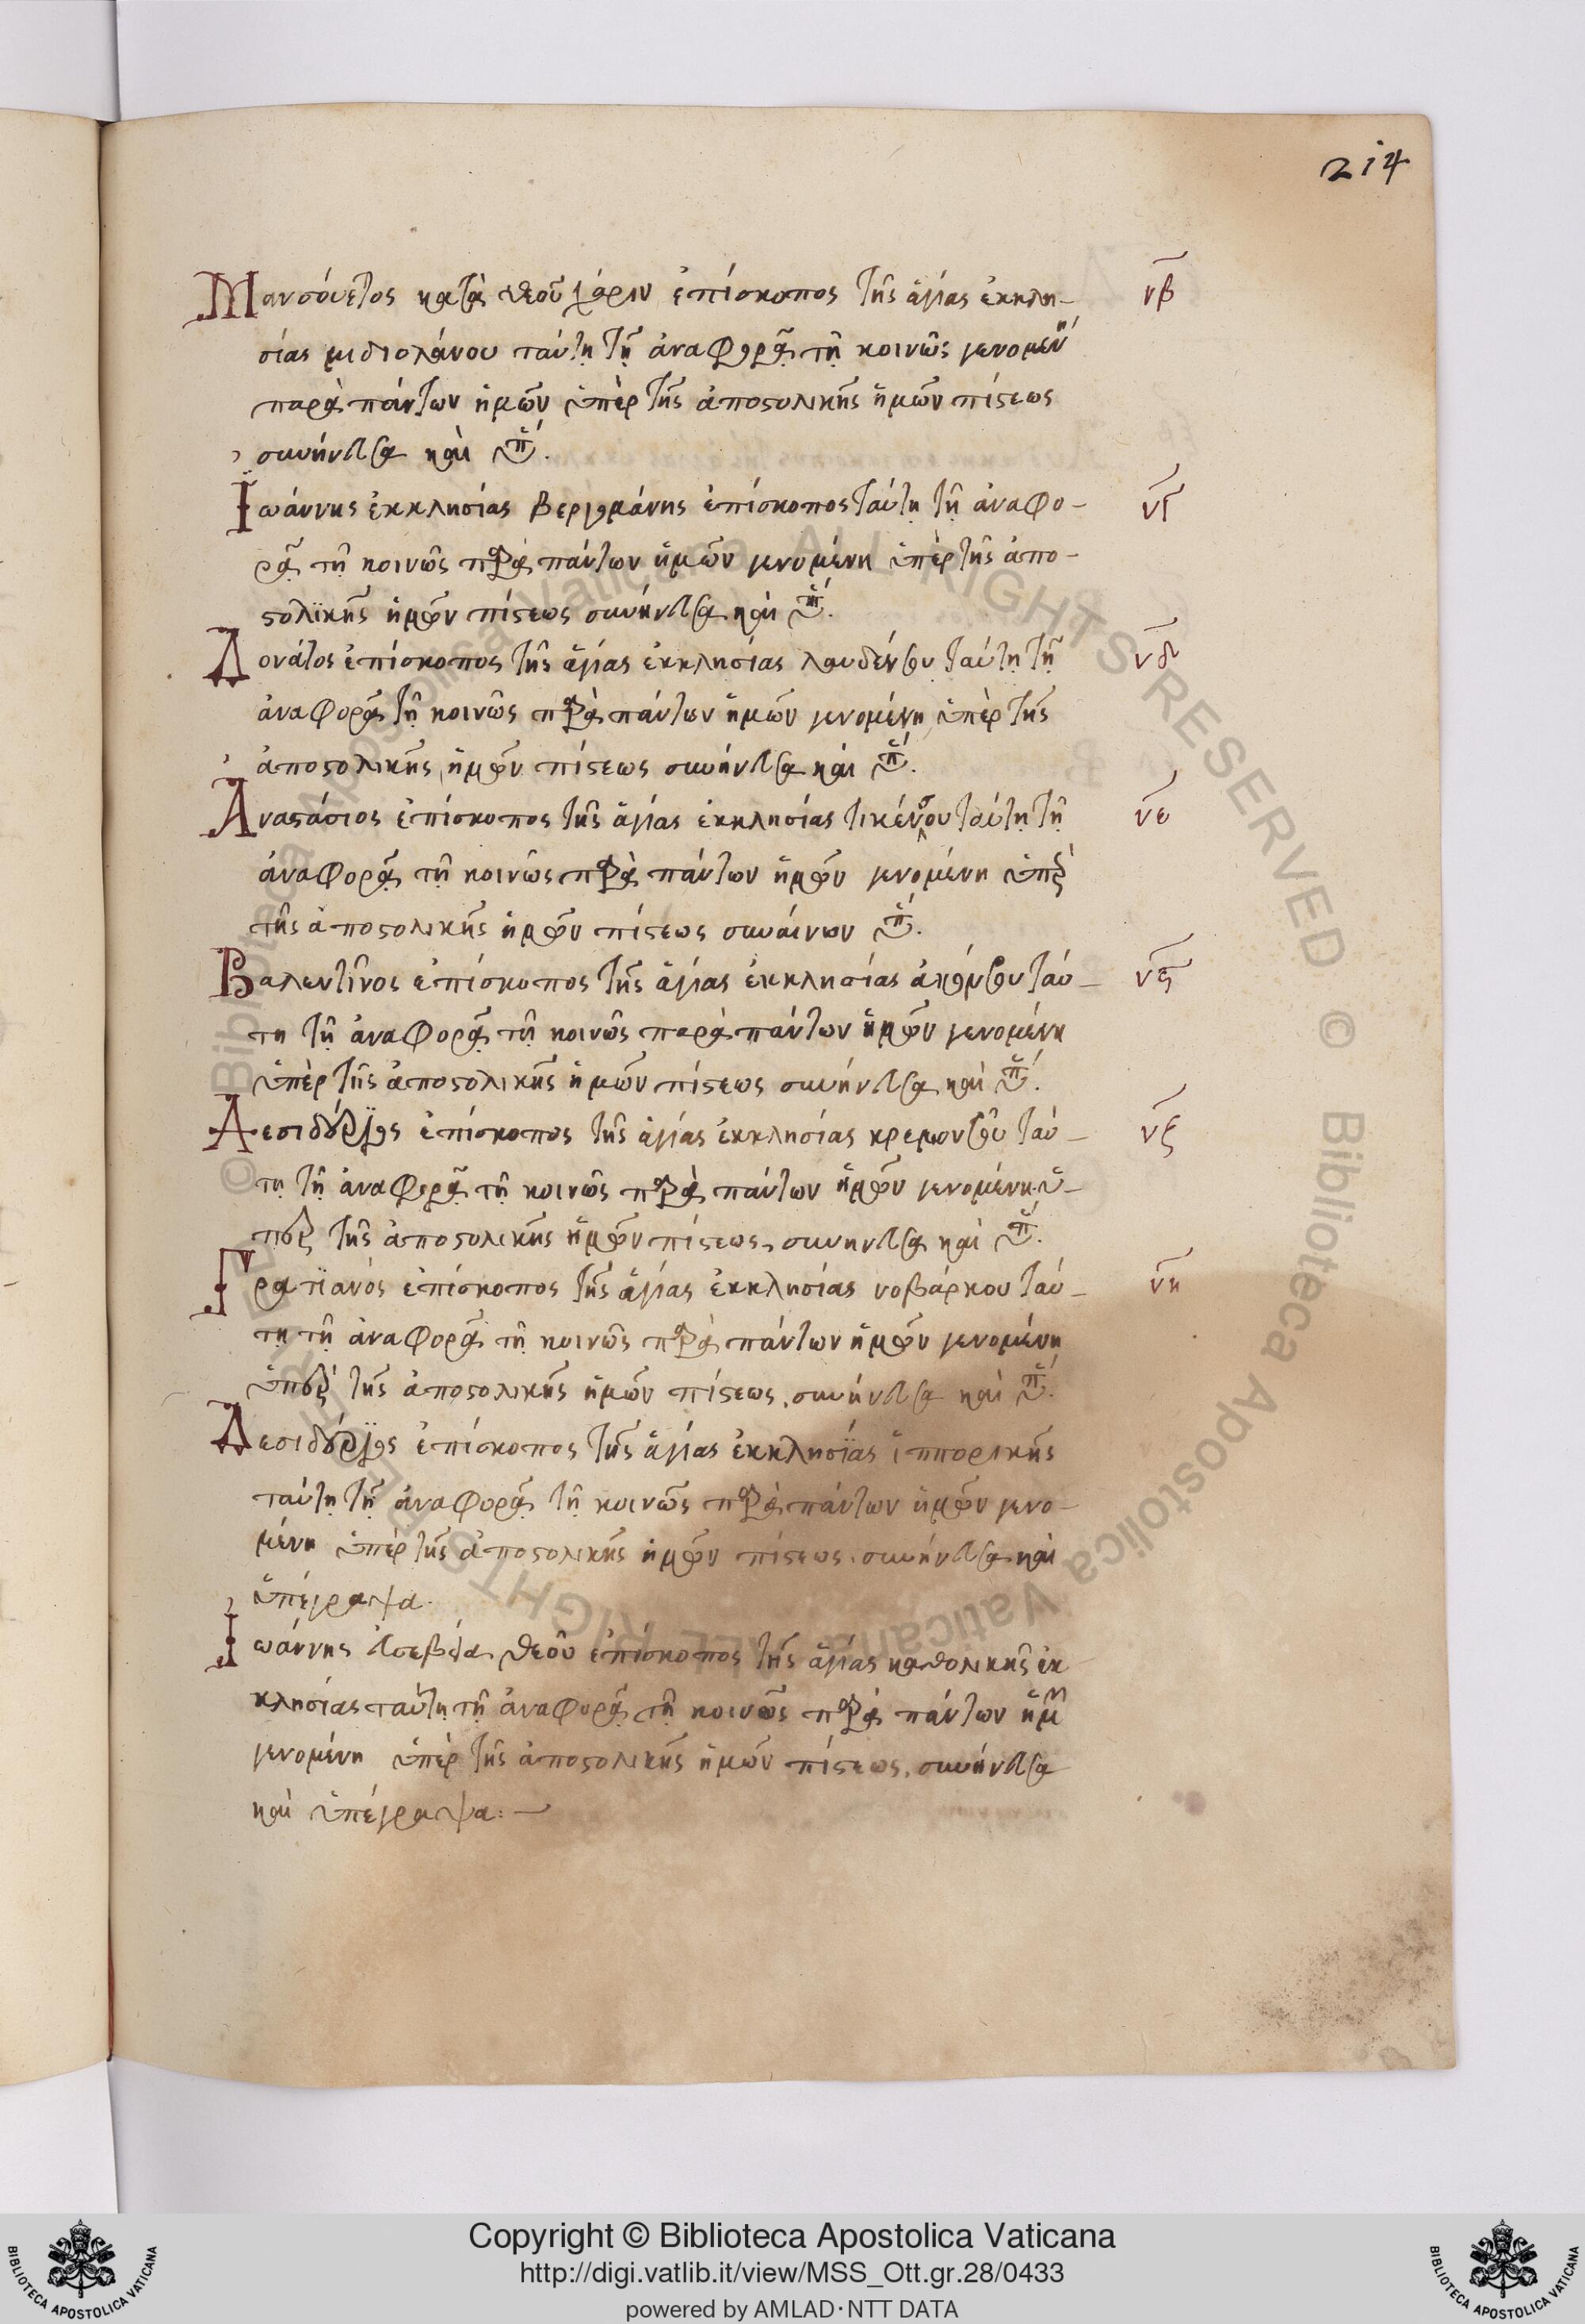 214
Μανσούετος κατὰ θεοῦ χάριν ἐπίσκοπος τῆς ἁγίας ἐκκλη- νβ
σίας μιδιολάνου ταύτῃ τῇ ἀναφορᾷ τῇ κοινῶς γενομένη
παρὰ πάντων ἡμῶν ὑπὲρ τῆς ἀποστολικῆς ἡμῶν πίστεως
συνήνεσα καὶ ὑπ.
Ἰωάννης ἐκκλησίας βεργομάνης ἐπίσκοπος ταύτῃ τῇ ἀναφο- νγ
ρᾷ τῇ κοινῶς παρὰ πάντων ἡμῶν γενομένη ὑπὲρ τῆς ἀπο-
στολϊκῆς ἡμῶν πίστεως συνήνεσα καὶ ὑπ.
Δονάτος ἐπίσκοπος τῆς ἁγίας ἐκκλησίας λαυδένσου ταύτῃ τῇ νδ
ἀναφορᾷ τῇ κοινῶς παρὰ πάντων ἡμῶν γενομένη ὑπὲρ τῆς
ἀποστολικῆς ἡμῶν πίστεως συνήνεσα καὶ ὑπ.
Ἀναστάσιος ἐπίσκοπος τῆς ἁγίας ἐκκλησίας τικένσου ταύτῃ τῇ νε
ἀναφορᾷ τῇ κοινῶς παρὰ πάντων ἡμῶν γενομένη ὑπὲρ
τῆς ἀποστολικῆς ἡμῶν πίστεως συναίνων ὑπ.
Βαλεντῖνος ἐπίσκοπος τῆς ἁγίας ἐκκλησίας ἀκόνσου ταύ- νϛ
τη τῇ ἀναφορᾷ τῇ κοινῶς παρὰ πάντων ἡμῶν γενομένη
ὑπὲρ τῆς ἀποστολικῆς ἡμῶν πίστεως συνήνεσα καὶ ὑπ.
Δεσιδέριος ἐπίσκοπος τῆς ἁγίας ἐκκλησίας κρεμονσοῦ ταύ- νζ
τῃ τῇ ἀναφορᾷ τῇ κοινῶς παρὰ πάντων ἡμῶν γενομένη ὑ-
πὲρ τῆς ἀποστολικῆς ἡμῶν πίστεως, συνηνεσα καὶ ὑπ.
Γρατϊανὸς ἐπίσκοπος τῆς ἁγίας ἐκκλησίας νοβάρκου ταύ- νη
τῃ τῇ ἀναφορᾷ τῇ κοινῶς παρὰ πάντων ἡμῶν γενομένη
ὑπὲρ τῆς ἀποστολικῆς ἡμῶν πίστεως, συνήνεσα καὶ ὑπ.
Δεσιδέριος ἐπίσκοπος τῆς ἁγίας ἐκκλησϊας ἱππορικῆς
ταύτῃ τῇ ἀναφορᾷ τῇ κοινῶς παρὰ πάντων ἡμῶν γενο-
μένη ὑπὲρ τῆς ἀποστολικῆς ἡμῶν πίστεως. συνήνεσα καὶ
ὑπέγραψα.
Ἰωάννης εὐσεβείᾳ θεοῦ ἐπίσκοπος τῆς ἁγίας καθολικῆς ἐκ
κλησίας ταύτῃ τῇ ἀναφορᾷ τῇ κοινῶς παρὰ πάντων ἡμῶν
γενομένη ὑπὲρ τῆς ἀποστολικῆς ἡμῶν πίστεως. συνήνεσα
καὶ ὑπέγραψα:—
© Biblioteca Apostolica Vaticana ALL RIGHTS RESERVED © Biblioteca Apostolica Vaticana ALL RIGHTS RESERVED
Copyright © Biblioteca Apostolica Vaticana
http://digi.vatlib.it/view/MSS_Ott.gr.28/0433
powered by AMLAD·NTT DATA
BIBLIOTECA APOSTOLICA VATICANA
BIBLIOTECA APOSTOLICA VATICANA